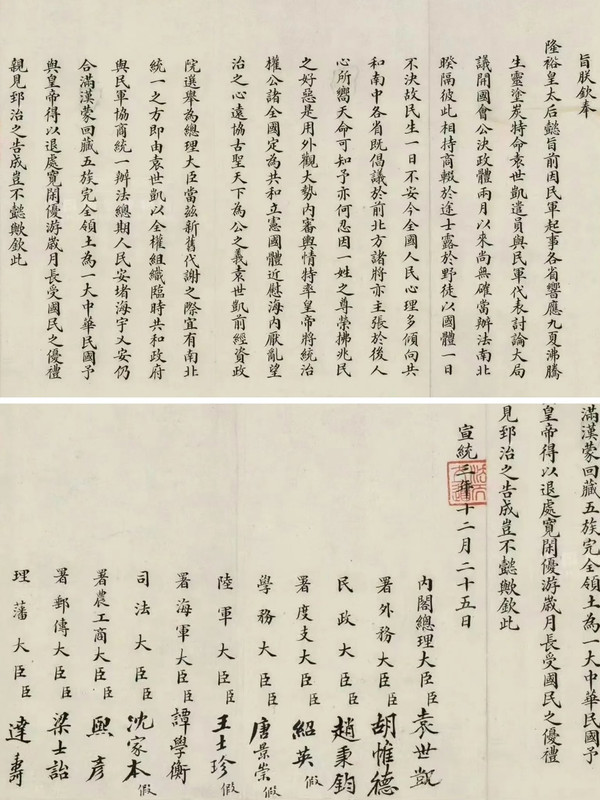 旨朕欽奉
隆裕皇太后懿旨前因民軍起事各省響應九夏沸騰
生靈塗炭特命袁世凱遣員與民軍代表討論大局
議開國會公決政體兩月以來尚無確當辦法南北
暌隔彼此相持商輟於途士露於野徒以國體一日
不決故民生一日不安今全國人民心理多傾向共
和南中各省既倡議於前北方諸將亦主張於後人
心所嚮天命可知予亦何忍因一姓之尊榮拂兆民
之好惡是用外觀大勢內審輿情特率皇帝將統治
權公諸全國定為共和立憲國體近慰海內厭亂望
治之心遠協古聖天下為公之義袁世凱前經資政
院選舉為總理大臣當茲新舊代謝之際宜有南北
統一之方即由袁世凱以全權組織臨時共和政府
與民軍協商統一辦法總期人民安堵海宇乂安仍
合滿漢蒙回藏五族完全領土為一大中華民國予
與皇帝得以退處寬閑優游歲月長受國民之優禮
親見郅治之告成豈不懿歟欽此
滿漢蒙回藏五族完全領土為一大中華民國予
皇帝得以退處寬閑優游歲月長受國民之優禮
見郅治之告成豈不懿歟欽此
宣統三年十二月二十五日
內閣總理大臣臣袁世凱
署外務大臣臣胡惟德
民政大臣臣趙秉鈞
署度支大臣臣紹英假
學務大臣臣唐景崇假
陸軍大臣臣王士珍假
署海軍大臣臣譚學衡
司法大臣臣沈家本假
署農工商大臣臣熙彥
署郵傳大臣臣梁士詒
理藩大臣臣達壽